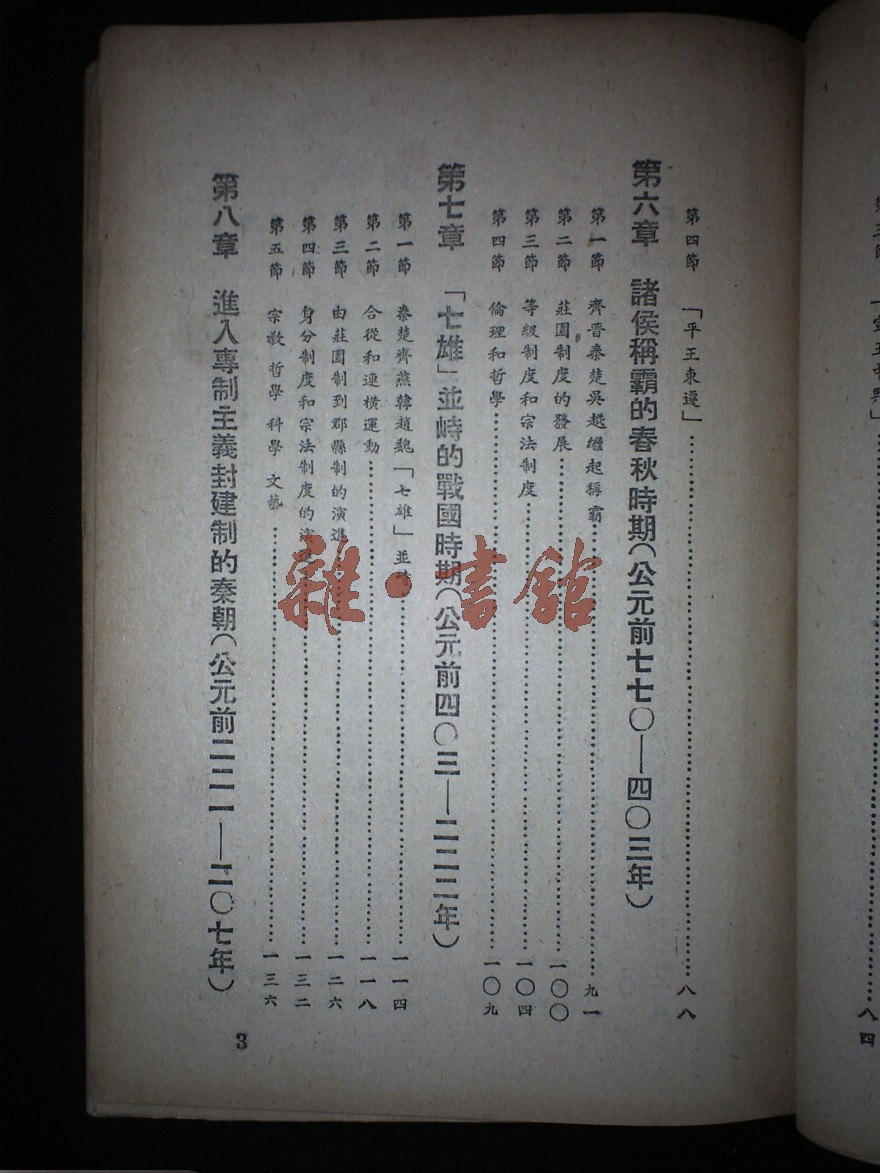 第四節 「平王東遷」…………八八
第六章 諸侯稱霸的春秋時期(公元前七七〇—四〇三年)
第一節 齊晋秦楚吳越繼起稱霸…………九一
第二節 莊園制度的發展…………一〇〇
第三節 等級制度和宗法制度…………一〇四
第四節 倫理和哲學…………一〇九
第七章 「七雄」並峙的戰國時期(公元前四〇三—二二二年)
第一節 秦楚齊燕韓趙魏「七雄」並峙…………一一四
第二節 合從和連橫運動…………一一八
第三節 由莊園制到郡縣制的演進…………一二六
第四節 身分制度和宗法制度的演…………一三二
第五節 宗教 哲學 科學 文藝…………一三六
第八章 進入專制主義封建制的秦朝(公元前二二一—二〇七年)
3
八四
雜·書館